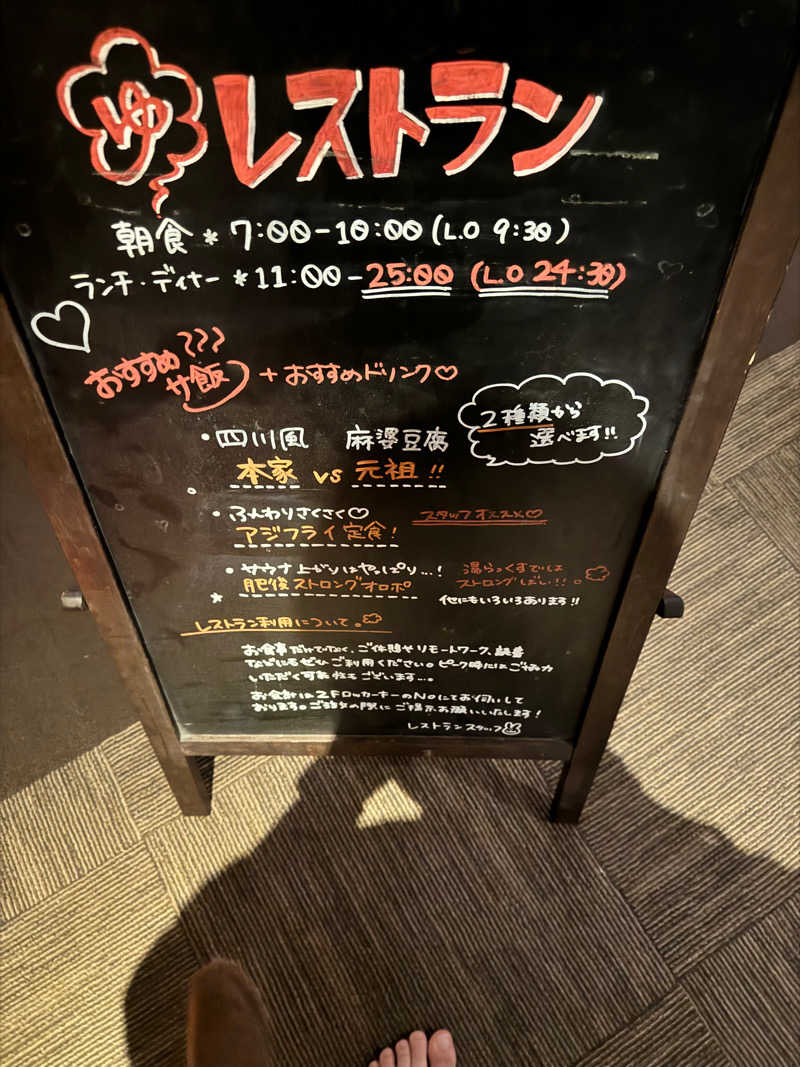 ゆ レストラン
朝食 * 7:00-10:00 (L.O 9:30)
ランチ・ディナー * 11:00-25:00 (L.O 24:30)
おすすめ
サ飯 + おすすめドリンク♡
2種類から
選べます!!
・四川風 麻婆豆腐
本家 vs 元祖!!
・ふんわりさくさく♡ スタッフオススメ♡
アジフライ定食!
・サウナ上がりはやっぱり...! 湯らっくすでは
肥後ストロングオロポ ストロングばい!!。
他にもいろいろあります!!
レストラン利用について。
お食事だけでなく、ご休憩やリモートワーク、読書
などにもぜひご利用ください。ピーク時にはご協力
いただく可能性もございます...。
お会計は2FロッカーキーのNoにてお伺いして
おります。ご注文の際にご提示お願いいたします!
レストランスタッフ